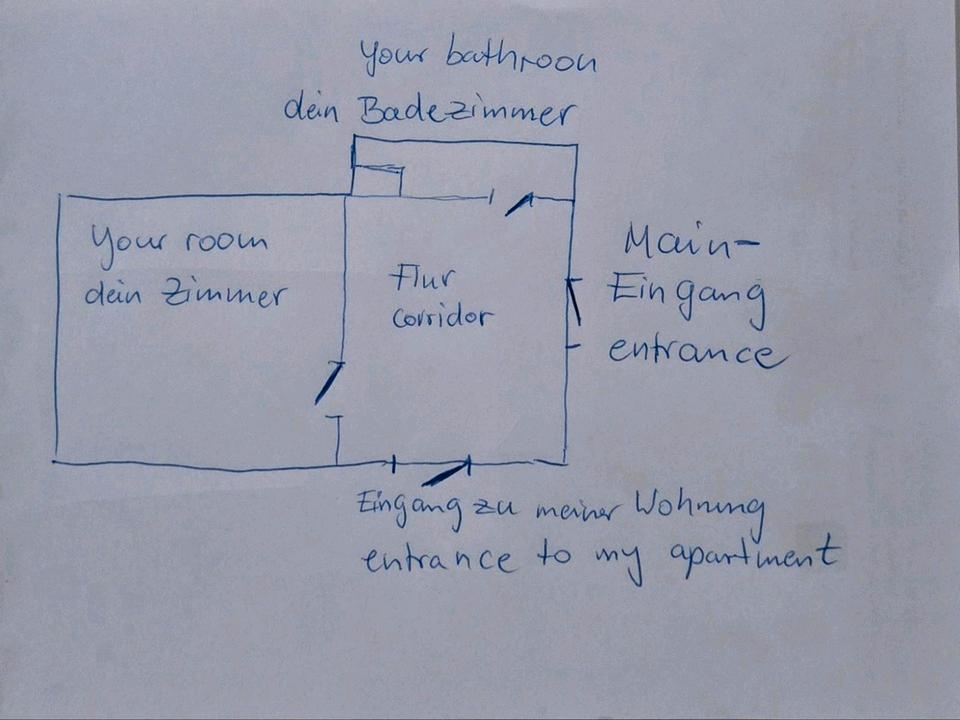 Your bathroon
dein Badezimmer
Your room
dein Zimmer
Flur
corridor
Main-
Eingang
entrance
Eingang zu meiner Wohnung
entrance to my apartment